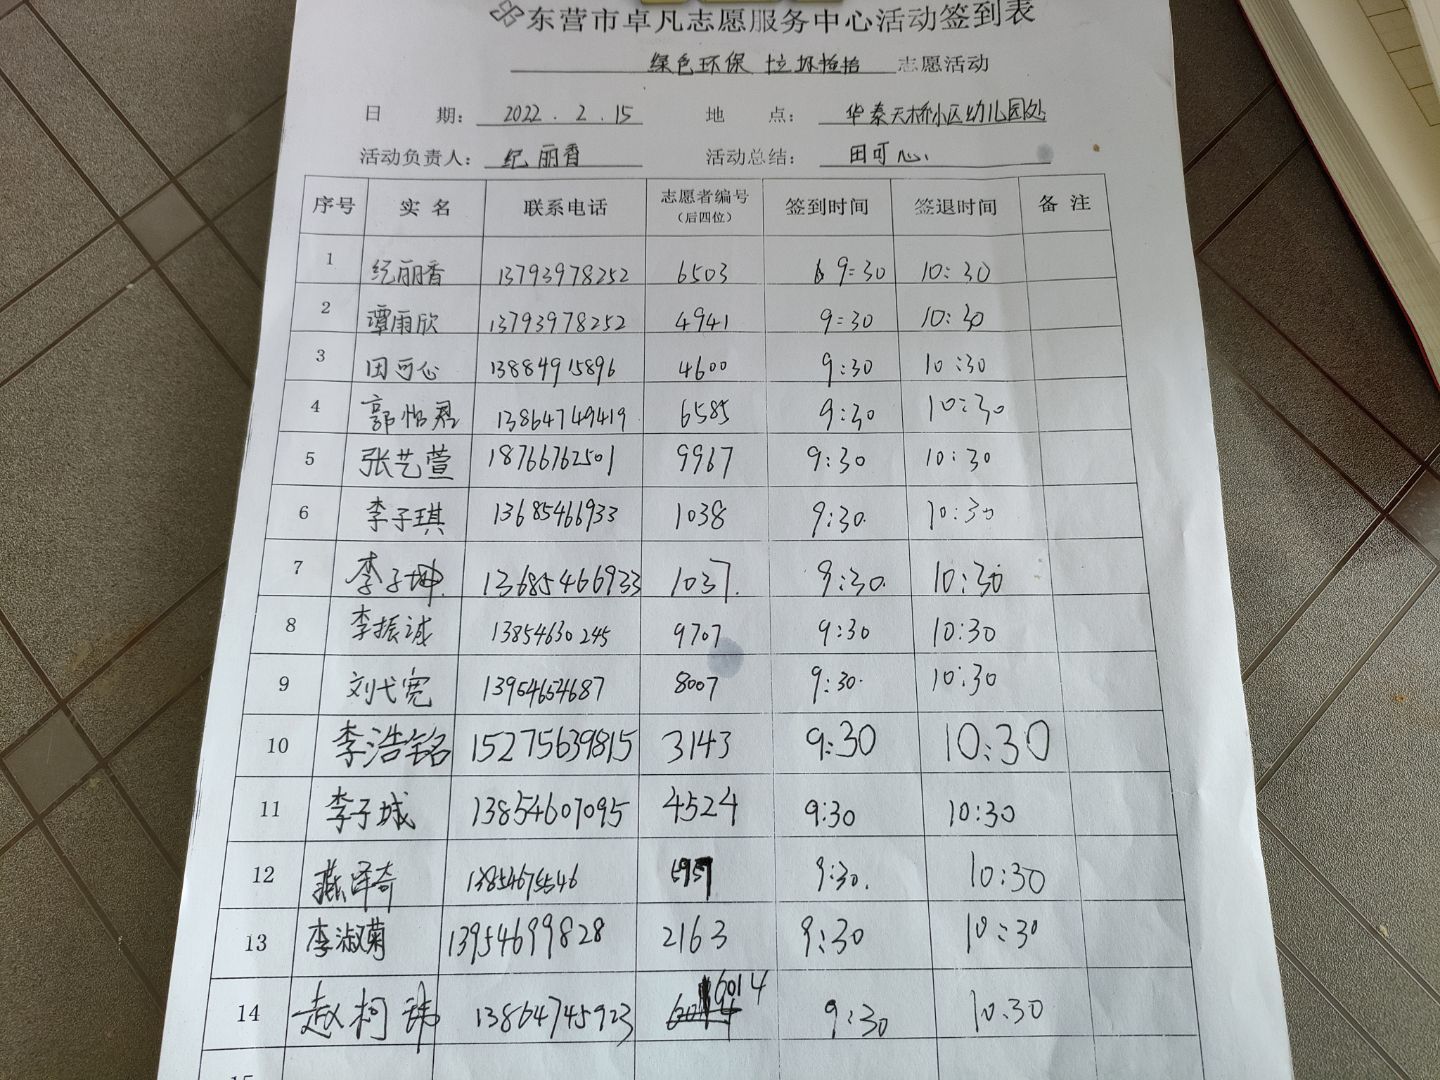 东营市卓凡志愿服务中心活动签到表
绿色环保 垃圾捡拾 志愿活动
日 期： 2022.2.15 地 点： 华泰天桥小区幼儿园处
活动负责人： 纪丽香 活动总结： 田可心
序号 实 名 联系电话 志愿者编号（后四位） 签到时间 签退时间 备 注
1 纪丽香 13793978252 6503 9:30 10:30
2 谭雨欣 13793978252 4941 9:30 10:30
3 田可心 13884915896 4600 9:30 10:30
4 郭怡君 13864749419 6585 9:30 10:30
5 张艺萱 18766762501 9967 9:30 10:30
6 李子琪 13685466933 1038 9:30 10:30
7 李子坤 13685466933 1037 9:30 10:30
8 李振诚 13854630245 9707 9:30 10:30
9 刘代宽 13954654687 8007 9:30 10:30
10 李浩铭 15275639815 3143 9:30 10:30
11 李子城 13854607095 4524 9:30 10:30
12 燕泽奇 13854675546 9:30 10:30
13 李淑菊 13954699828 2163 9:30 10:30
14 赵柯玮 13864745923 6014 9:30 10:30